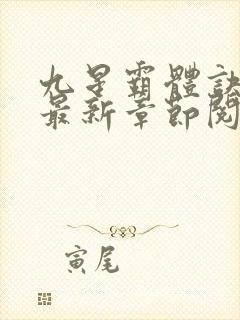 九星霸體訣
最新章節閱
寅尾